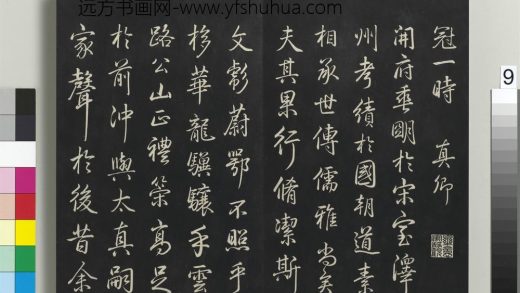 远方书画网-www.yfshuhua.com
冠一時 真卿
開府垂明於宋室澤
州考績於國朝道素
相承世傳儒雅尚矣
夫其果行脩潔斯
文彪蔚鄂不照乎
移華龍驥驤乎雲
路公山正禮策高足
於前沖與太真嗣
家聲於後昔余
9